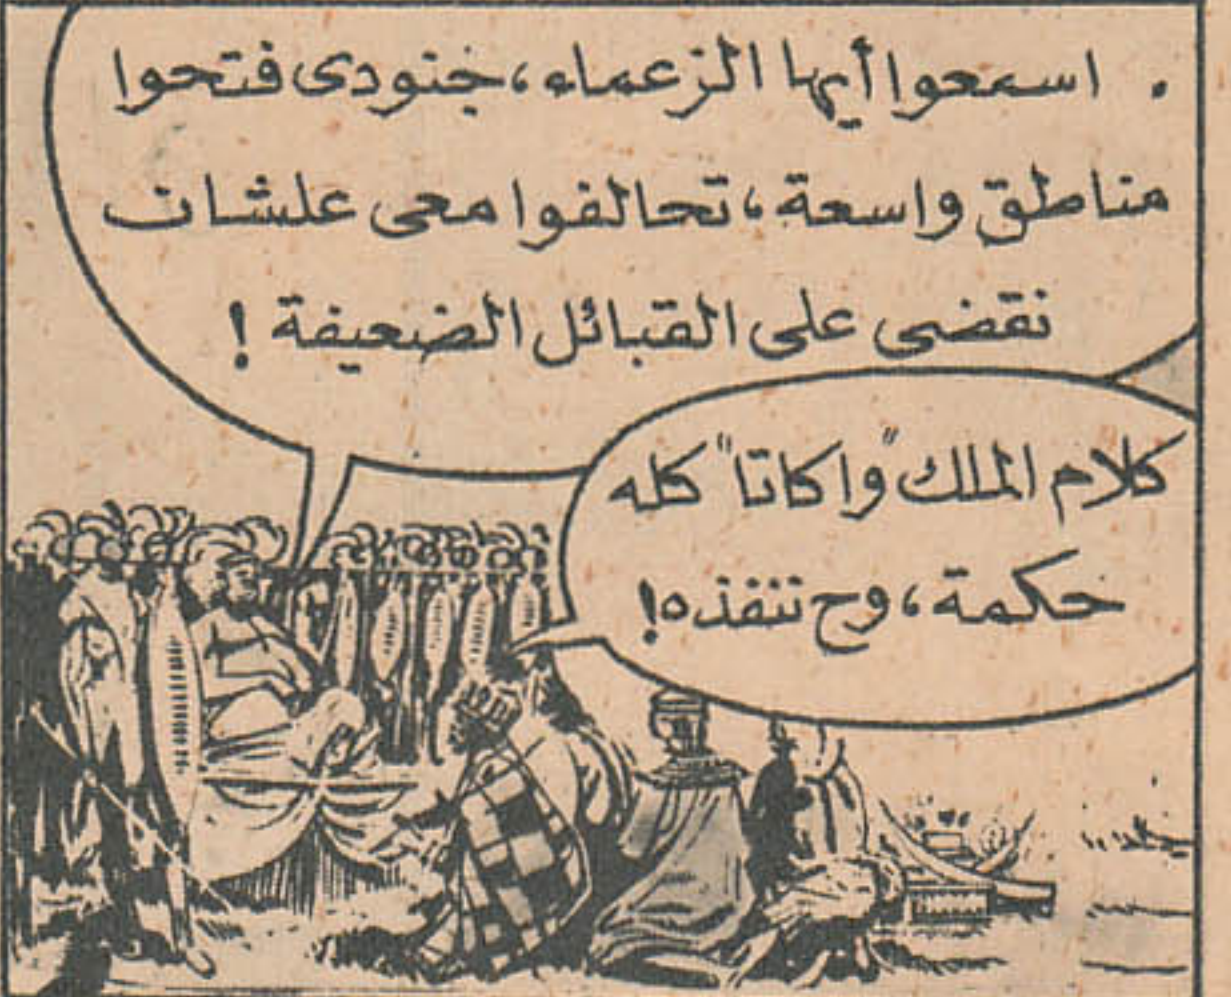 . اسمعوا أيها الزعماء، جنودى فتحوا
مناطق واسعة، تحالفوا معى علشان
نقضى على القبائل الضعيفة !
كلام الملك "واكاتا" كله
حكمة، وح تنفذه!